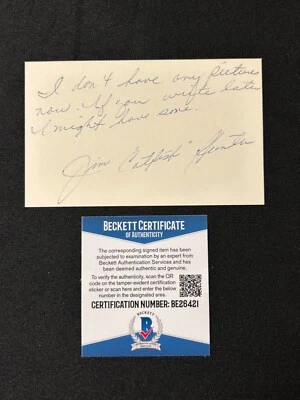 I don't have any pictures
now. If you write later
I might have some.
Jim "Catfish" Hunter
BECKETT CERTIFICATE
OF AUTHENTICITY
The corresponding signed item has been
subjected to examination by an expert from
Beckett Authentication Services and has
been deemed authentic and genuine.
To verify the authenticity, scan the QR
code on the tamper-evident certification
sticker or scan here and enter the below
number in the designated area.
CERTIFICATION NUMBER: BE26421
BECKETT
B